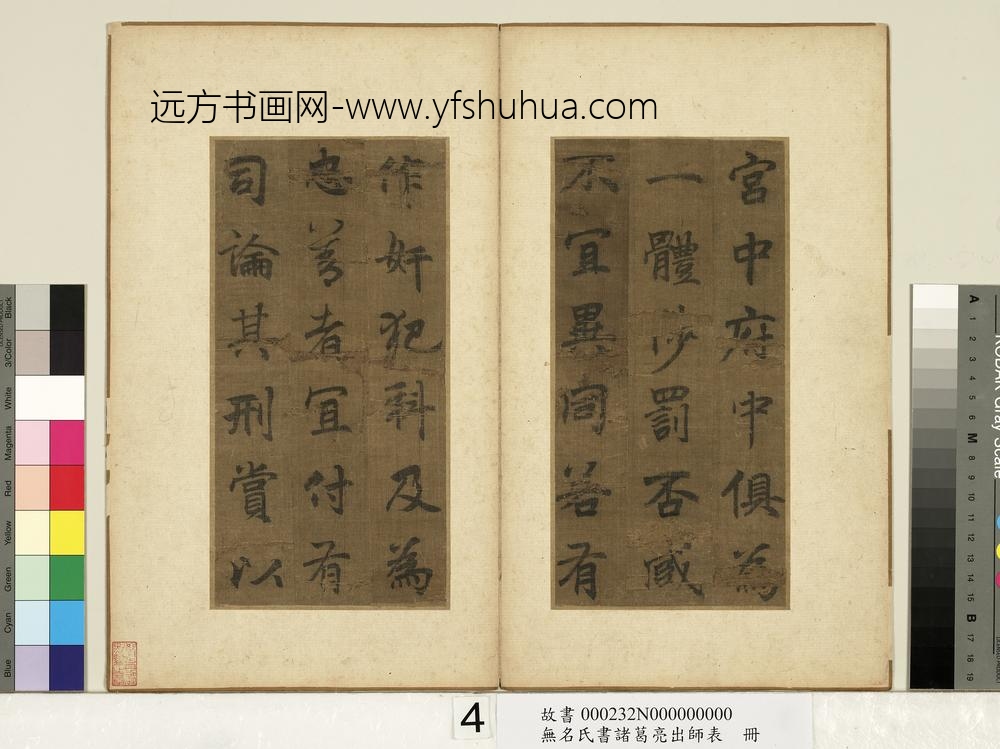 远方书画网-www.yfshuhua.com
宮中府中俱為
一體陟罰否臧
不宜異同若有
作奸犯科及為
忠善者宜付有
司論其刑賞以
Black
3/Color
White
Magenta
Red
Yellow
Green
Cyan
Blue
A 1 2 3 4 5 6 M 8 9 10 11 12 13 14 15 B 17 18 19
4
故書 000232N000000000
無名氏書諸葛亮出師表 冊